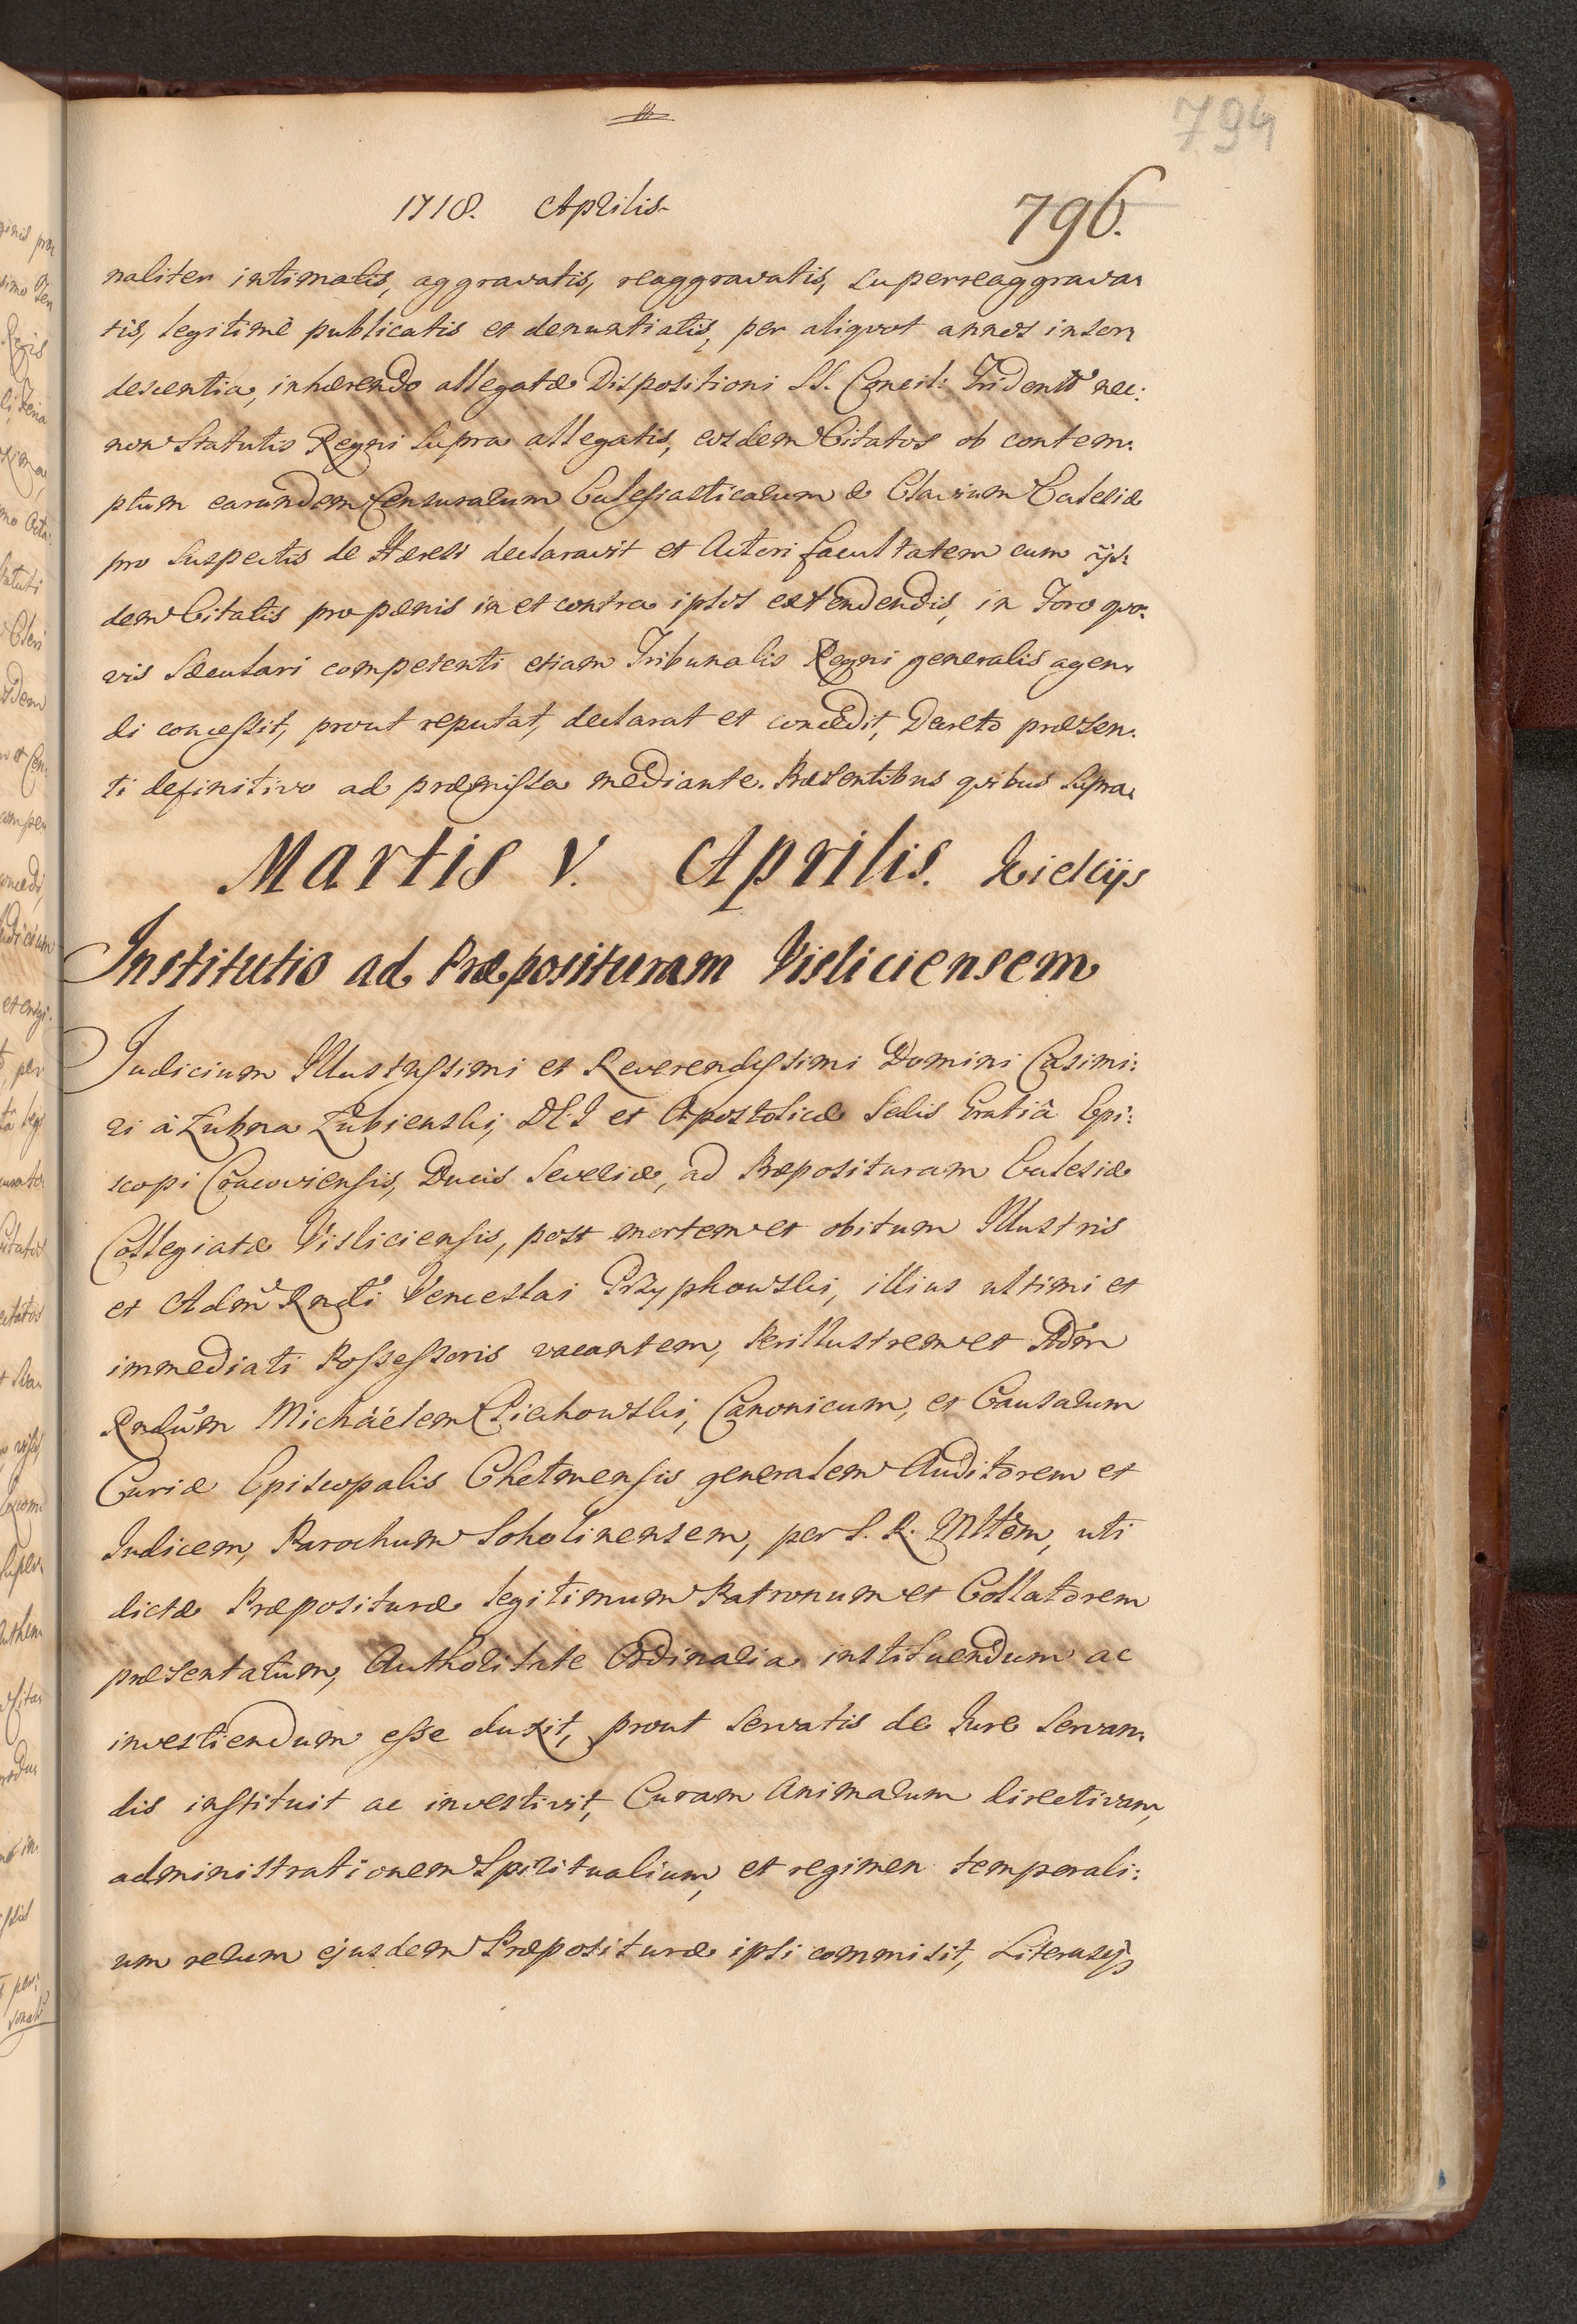 794
1718. Aprilis.
796.
naliter intimatis, aggravatis, reaggravatis, superreaggrava:
tis, legitimè publicatis et denuntiatis, per aliquot annos insor:
descentia, inhærendo allegatæ Dispositioni SS. Concil: Tridentī nec:
non Statutis Regni supra allegatis, eosdem Citatos ob contem:
ptum earundem Censurarum Ecclesiasticarum & Clavium Ecclesiæ
pro suspectis de Hæresi declaravit et Actori facultatem cum ijs:
dem Citatis pro pænis in et contra ipsos extendendis, in Foro quo:
vis sæculari competenti etiam Tribunalis Regni generalis agen:
di concessit, prout reputat, declarat et concedit, Decreto præsen:
ti definitivo ad præmissa mediante. Præsentibus quibus supra.
Martis V. Aprilis. Kielcijs
Institutio ad Præposituram Visliciensem
Judicium Illustrissimi et Reverendissimi Domini Casimi:
ri à Łubna Łubienski, DEI et Apostolicæ Sedis Gratiâ Epi:
scopi Cracoviensis, Ducis Severiæ, ad Præposituram Ecclesiæ
Collegiatæ Visliciensis, post mortem et obitum Illustris
et Adm̃ Rndi Venceslai Przyphowski, illius ultimi et
immediati Possessoris vacantem, Perillustrem et Adm̃
Rndūm Michäélem Piechowski, Canonicum, et Causarum
Curiæ Episcopalis Chelmensis generalem Auditorem et
Judicem, Parochum Sokolinensem, per S. R. Mttēm, uti
dictæ Præposituræ legitimum Patronum et Collatorem
præsentatum, Authoritate Ordinaria instituendum ac
investiendum esse duxit, prout servatis de Jure servan:
dis instituit ac investivit, Curam Animarum directivam,
administrationem Spiritualium, et regimen temporali:
um rerum ejusdem Præposituræ ipsi commisit, Literasq;